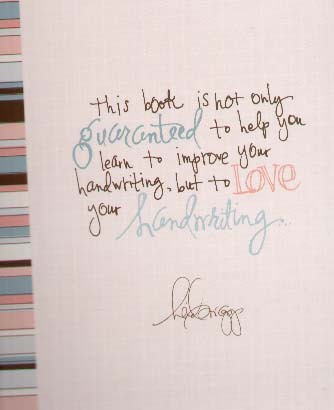 this book is not only
guaranteed to help you
learn to improve your
handwriting, but to LOVE
your handwriting...